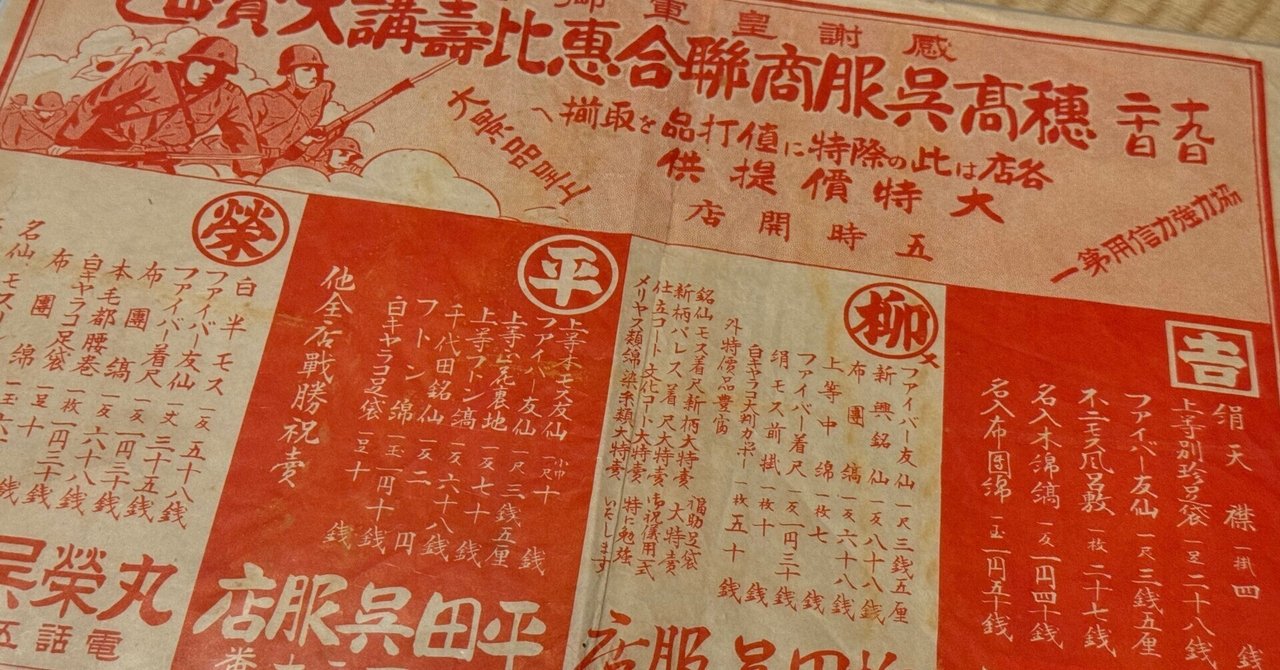 感謝皇軍御
穗高呉服商聯合惠比壽講大賣出
十九日
二十日
各店は此の際特に値打品を取揃へ
大特價提供
五時開店
協力強力信用第一
大景品呈上
吉
絹天襟 一掛 四 銭
上等別珍足袋 一足 二十八銭
ファイバー友仙 一尺 三銭五厘
不二モス風呂敷 一枚 二十七銭
名入木綿縞 一反 一円四十銭
名入布團綿 一玉 一円五十銭
柳
ファイバー友仙 一尺 三銭五厘
新興銘仙 一反 八十八銭
布團縞 一反 六十八銭
上等中綿 一枚 七銭
ファイバー着尺 一反 一円三十銭
絹モス前掛 一枚 十銭
白キャラコ 一枚 五十銭
外特價品豊富
銘仙モス着尺新柄大特賣 福助足袋大特賣
新柄パレス着尺大特賣 御祝儀用一式
仕立コート文化コート大特賣 特に勉強
メリヤス類綿染糸類大特賣 いたします
呉服店
平
上等本モス友仙 一尺 十 銭
ファイバー友仙 一尺 三銭五厘
上等 裏地 一反 七十銭
上等フトン縞 一反 六十八銭
千代田銘仙 一反 二円
フトン綿 一玉 一円十銭
白キャラコ足袋 一足 十銭
他全店戰勝祝賣
平田呉服店
榮
白半モス 一反 五十八銭
ファイバー友仙 一丈 三十五銭
ファイバー着尺 一反 一円三十銭
布團縞 一反 六十八銭
本毛都腰巻 一枚 一円二十銭
白キャラコ足袋 一足 十銭
布團綿
名仙
丸榮呉
電話五